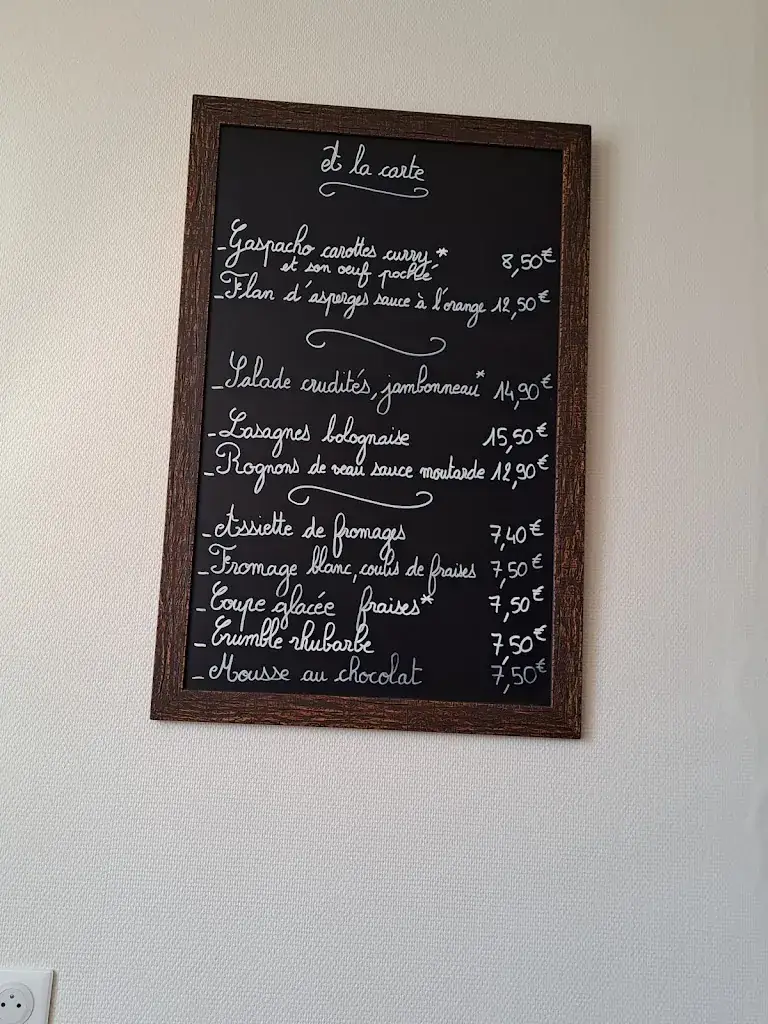 A la carte
- Gaspacho carottes curry * 8,50€
et son oeuf poché
- Flan d'asperges sauce à l'orange 12,50€
- Salade crudités, jambonneau* 14,90€
- Lasagnes bolognaise 15,50€
- Rognons de veau sauce moutarde 12,90€
- Assiette de fromages 7,40€
- Fromage blanc, coulis de fraises 7,50€
- Coupe glacée fraises* 7,50€
- Crumble rhubarbe 7,50€
- Mousse au chocolat 7,50€